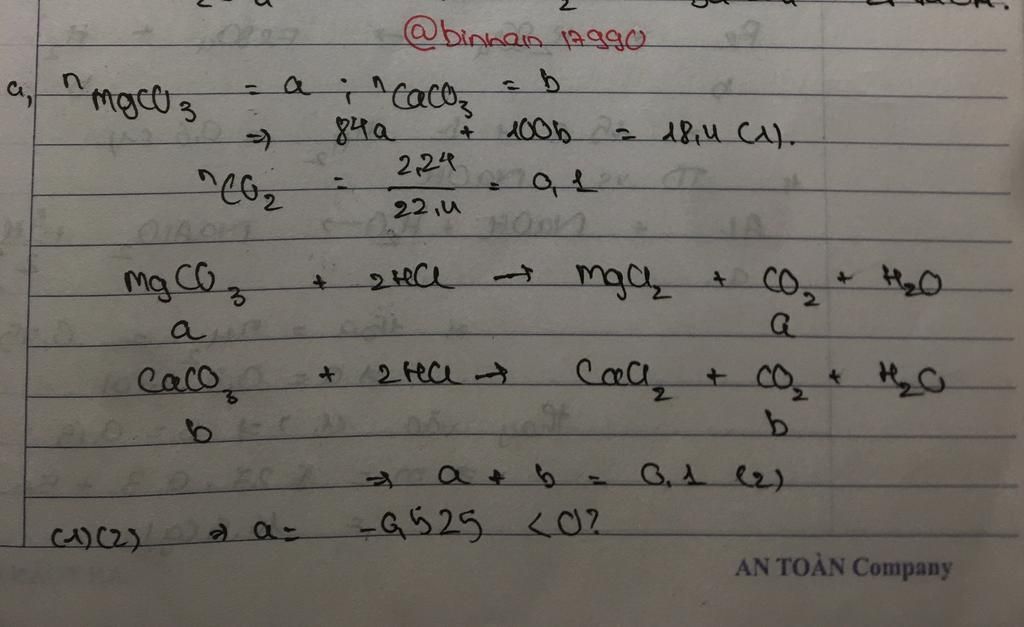 @binnain 17990
a, nMgCO₃ = a ; nCaCO₃ = b
⇒ 84a + 100b = 18,4 (1).
nCO₂ = 2,24/22,4 = 0,1
MgCO₃ + 2HCl → MgCl₂ + CO₂ + H₂O
a a
CaCO₃ + 2HCl → CaCl₂ + CO₂ + H₂O
b b
⇒ a + b = 0,1 (2)
(1)(2) ⇒ a = -0,525 < 0?
AN TOÀN Company